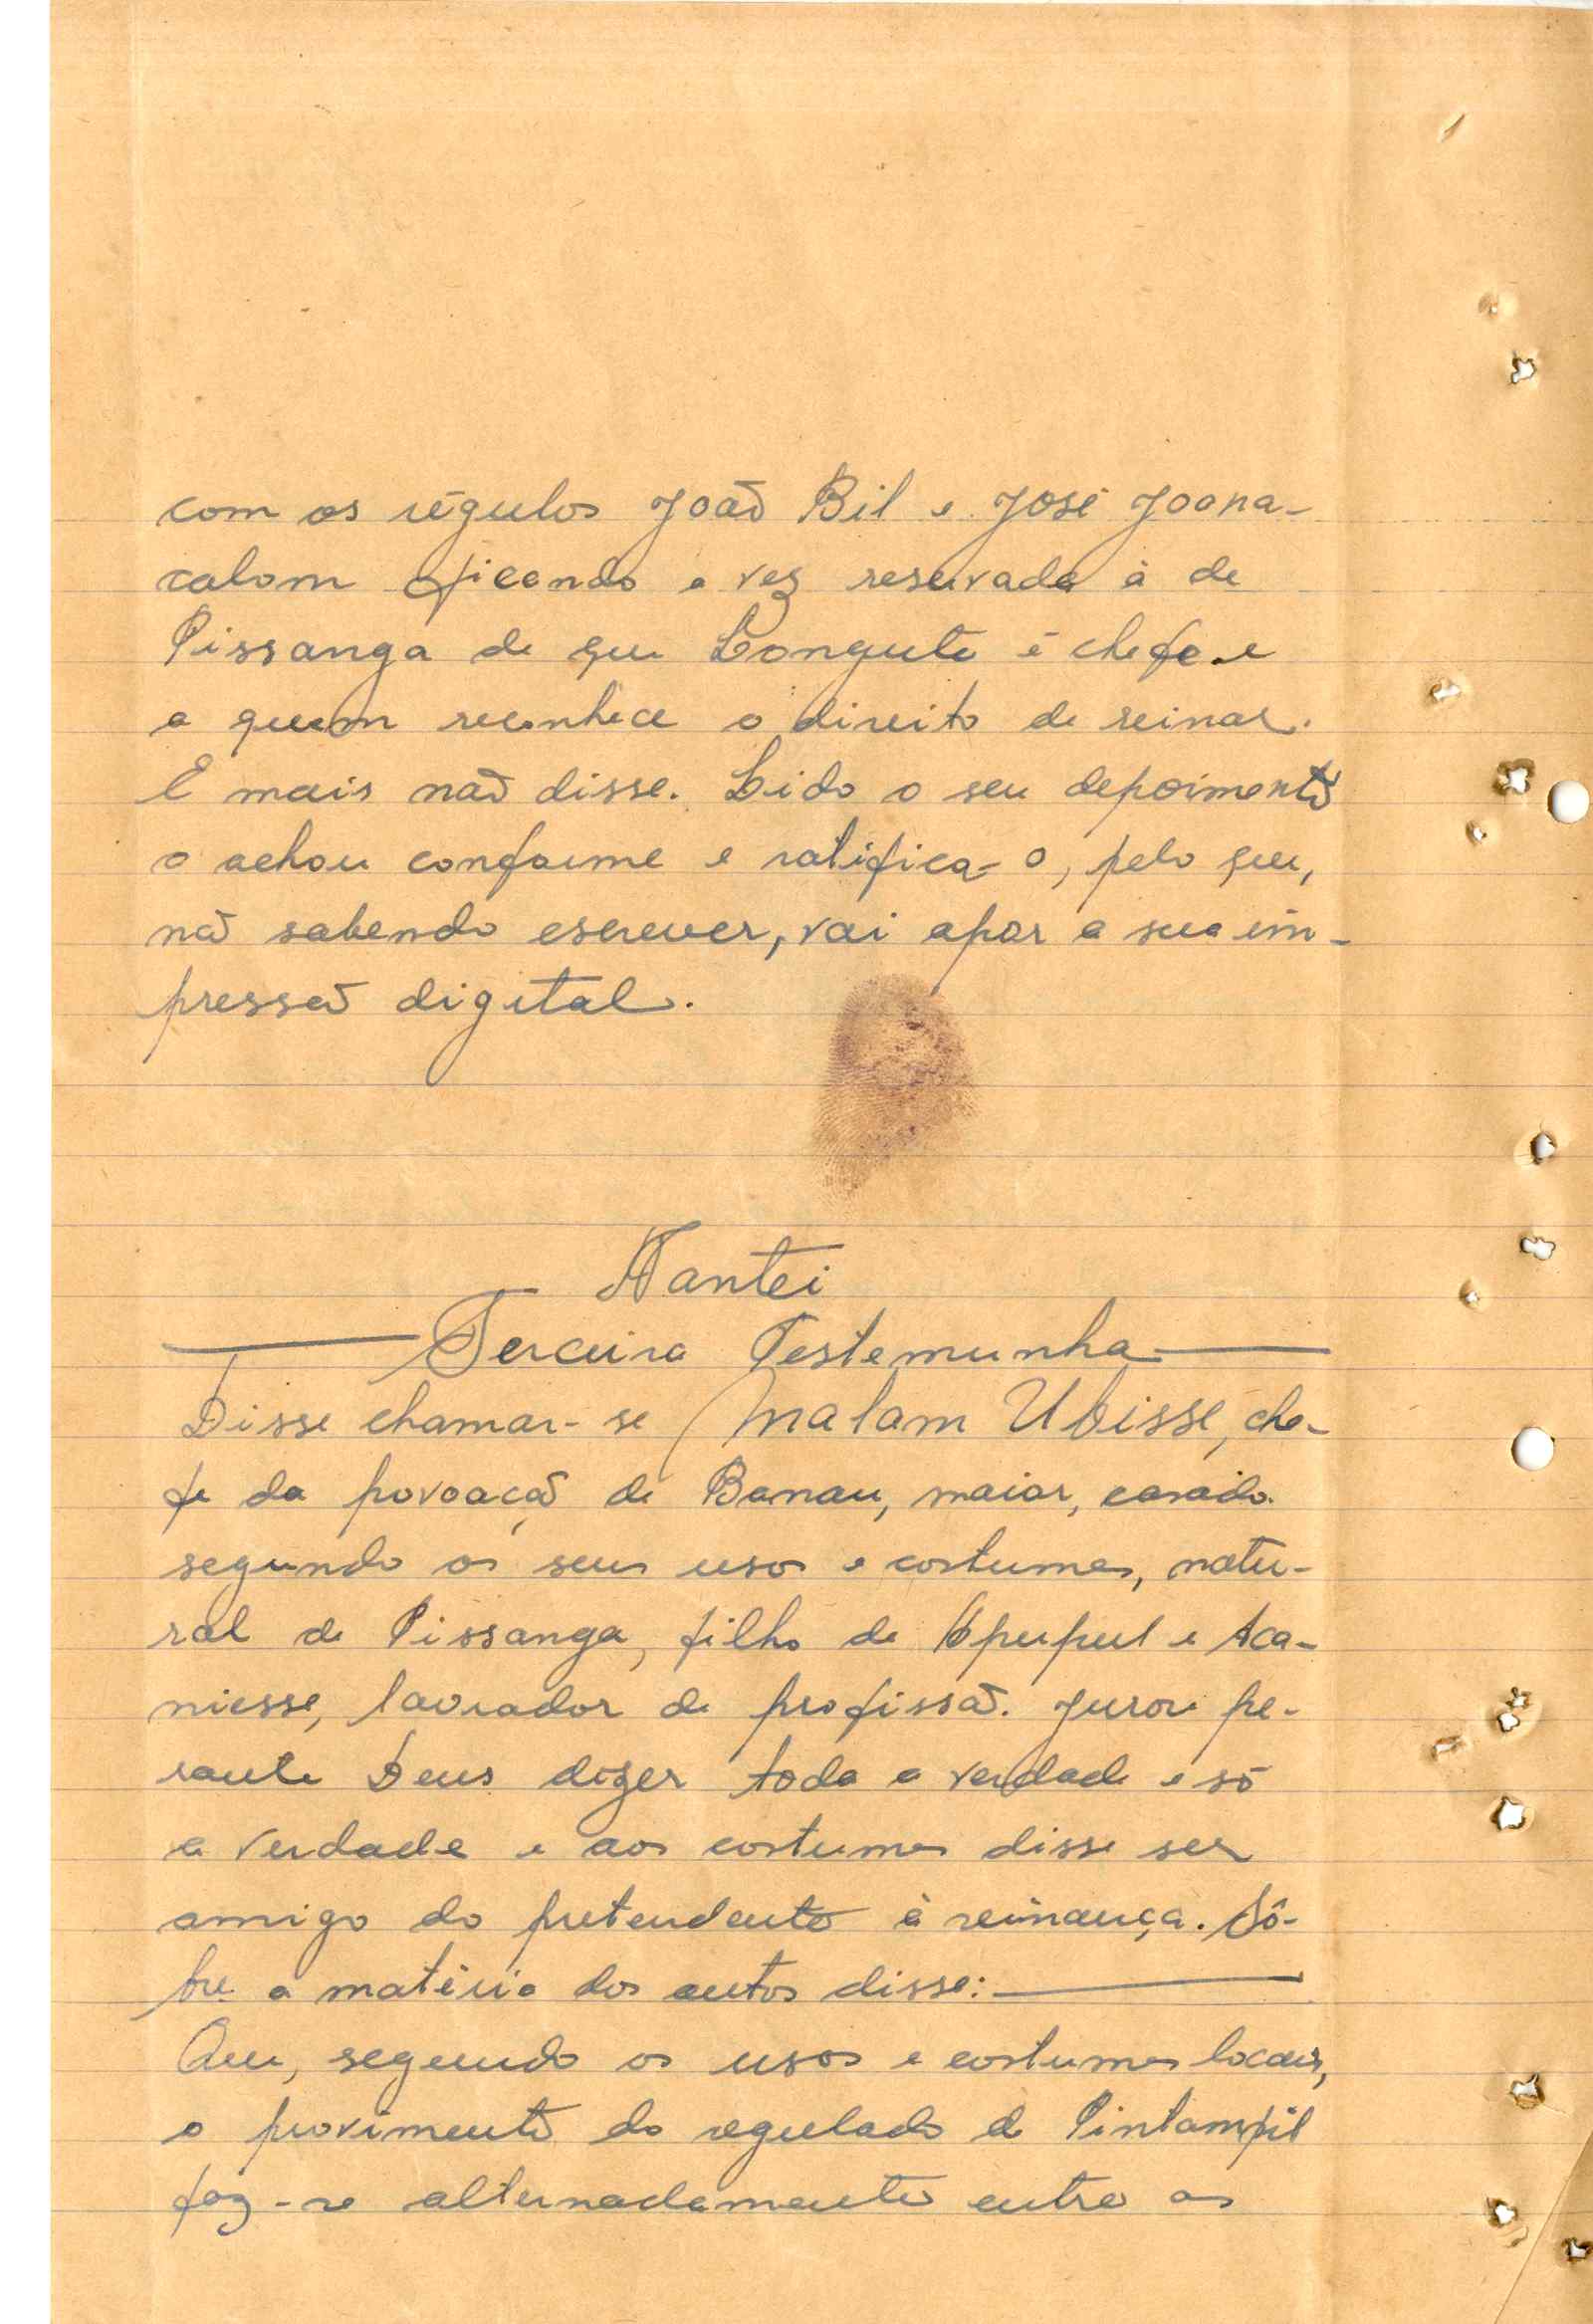 com os régulos João Bil e José Joona-
calom ficando a vez reservada à de
Pissanga de que Longute é chefe e
a quem reconhece o direito de reinar.
E mais não disse. Lido o seu depoimento
o achou conforme e ratifica-o, pelo que,
não sabendo escrever, vai apor a sua im-
pressão digital.
Nantei
Terceira Testemunha
Disse chamar-se Malam Ubisse, che-
fe da povoação de Banau, maior, casado
segundo os seus usos e costumes, natu-
ral de Pissanga, filho de Upupul e Aca-
niesse, lavrador de profissão. Jurou pe-
rante Deus dizer toda a verdade e só
a verdade e aos costumes disse ser
amigo do pretendente à reinança. Sô-
bre a matéria dos autos disse:
Que, segundo os usos e costumes locais,
o provimento do regulado de Pintampil
faz-se alternadamente entre as